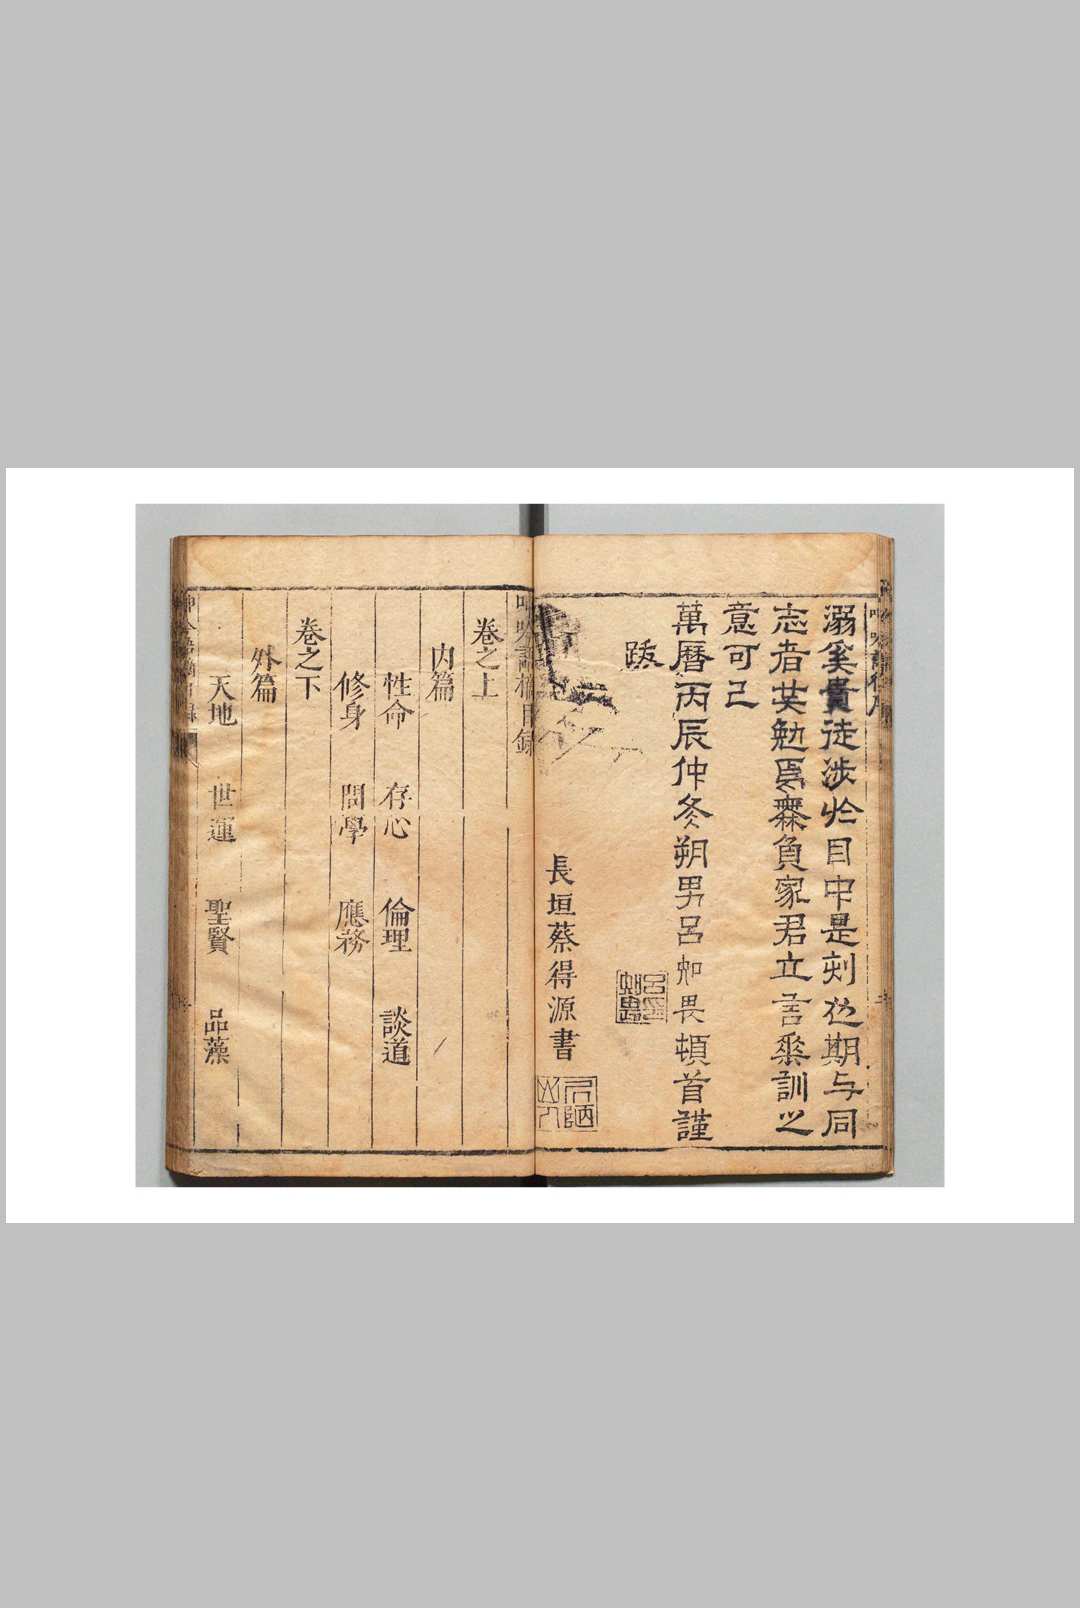 溺奚貴徒涉於目中是刻也期与同
志者共勉焉毋負家君立言垂訓之
意可已
萬曆丙辰仲冬朔男呂知畏頓首謹
跋
長垣蔡得源書
呻吟語摘目録
卷之上
内篇
性命 存心 倫理 談道
修身 問學 應務
卷之下
外篇
天地 世運 聖賢 品藻